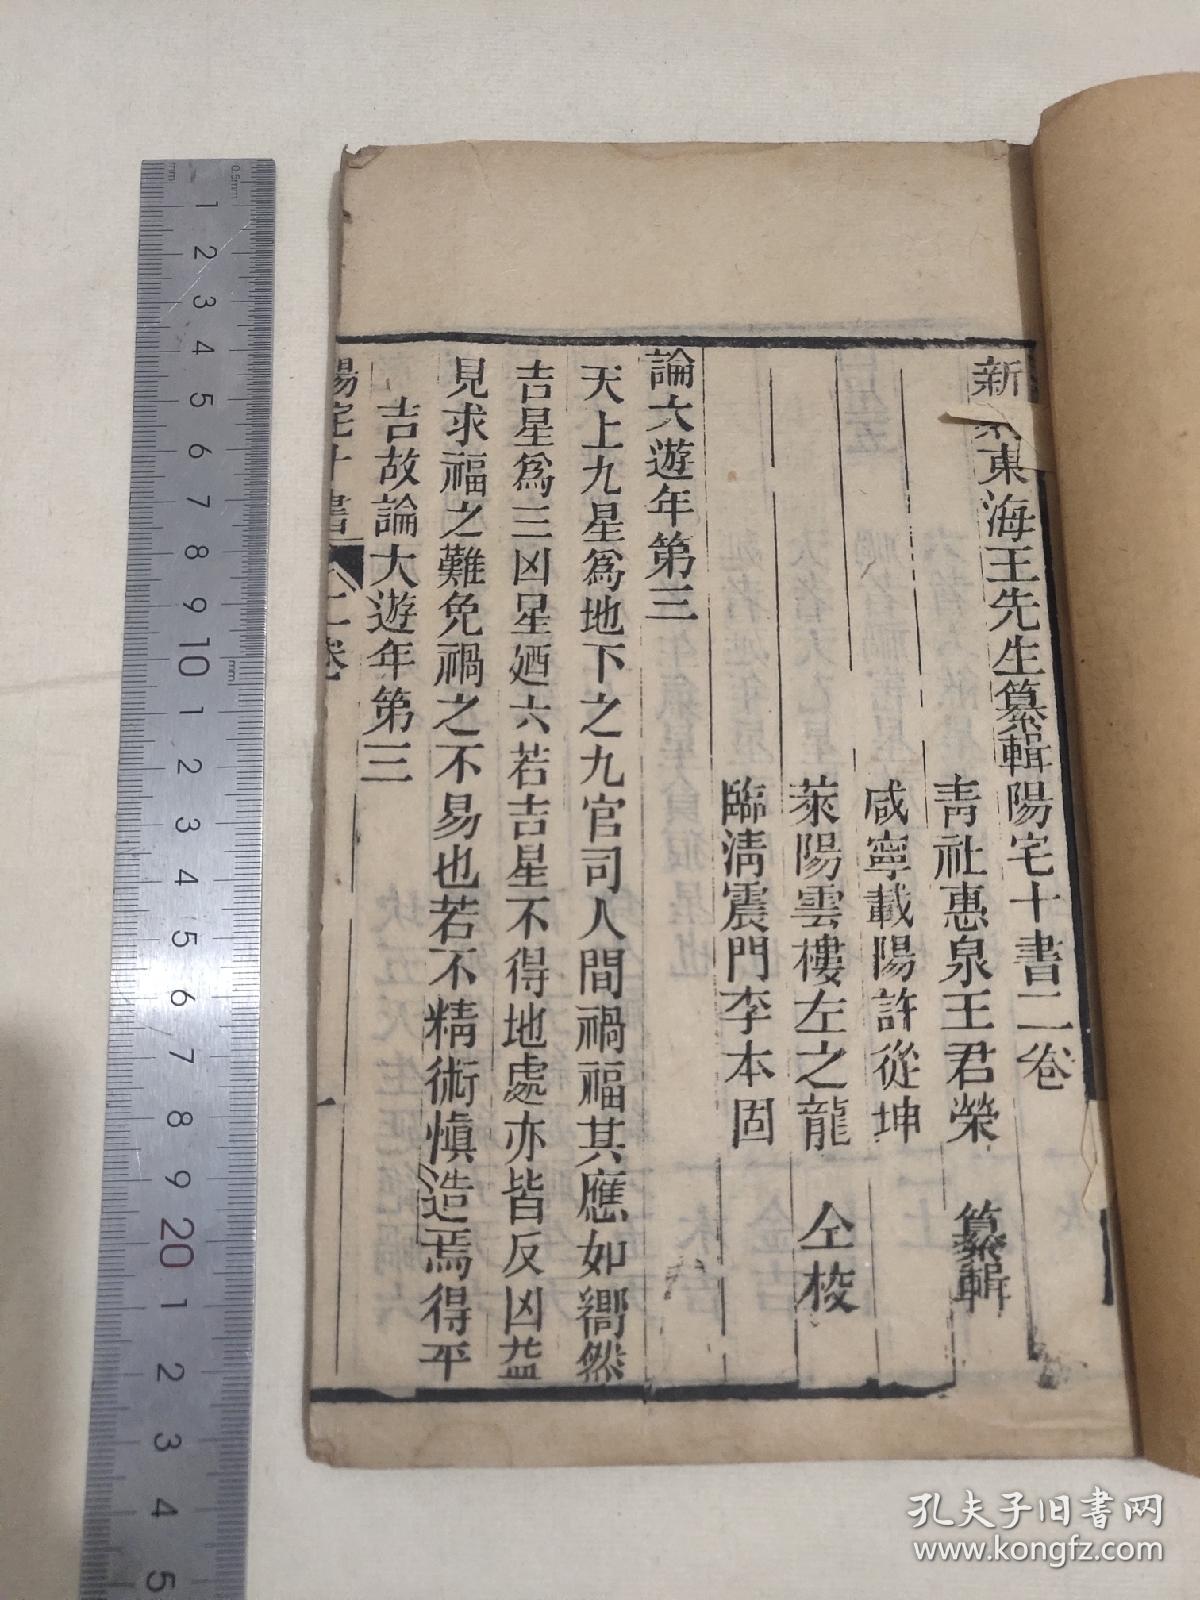 新 東海王先生纂輯陽宅十書二卷
青社惠泉王君榮 纂輯
咸寧載陽許從坤
萊陽雲樓左之龍 仝梭
臨清震門李本固
論大遊年第三
天上九星爲地下之九官司人間禍福其應如嚮然
吉星爲三凶星廼六若吉星不得地處亦皆反凶葢
見求福之難免禍之不易也若不精術慎造焉得平
吉故論大遊年第三
陽宅十書 二卷 一
0.5mm
mm
1 2 3 4 5 6 7 8 9 10 1 2 3 4 5 6 7 8 9 20 1 2 3 4 5
孔夫子旧书网
www.kongfz.com